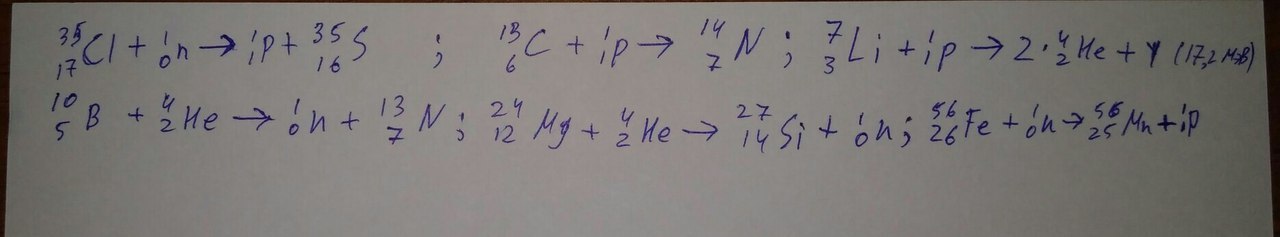 ³⁵₁₇Cl + ¹₀n → ¹₁p + ³⁵₁₆S ; ¹³₆C + ¹₁p → ¹⁴₇N ; ⁷₃Li + ¹₁p → 2·⁴₂He + γ (17,2 МэВ)
¹⁰₅B + ⁴₂He → ¹₀n + ¹³₇N ; ²⁴₁₂Mg + ⁴₂He → ²⁷₁₄Si + ¹₀n ; ⁵⁶₂₆Fe + ¹₀n → ⁵⁶₂₅Mn + ¹₁p